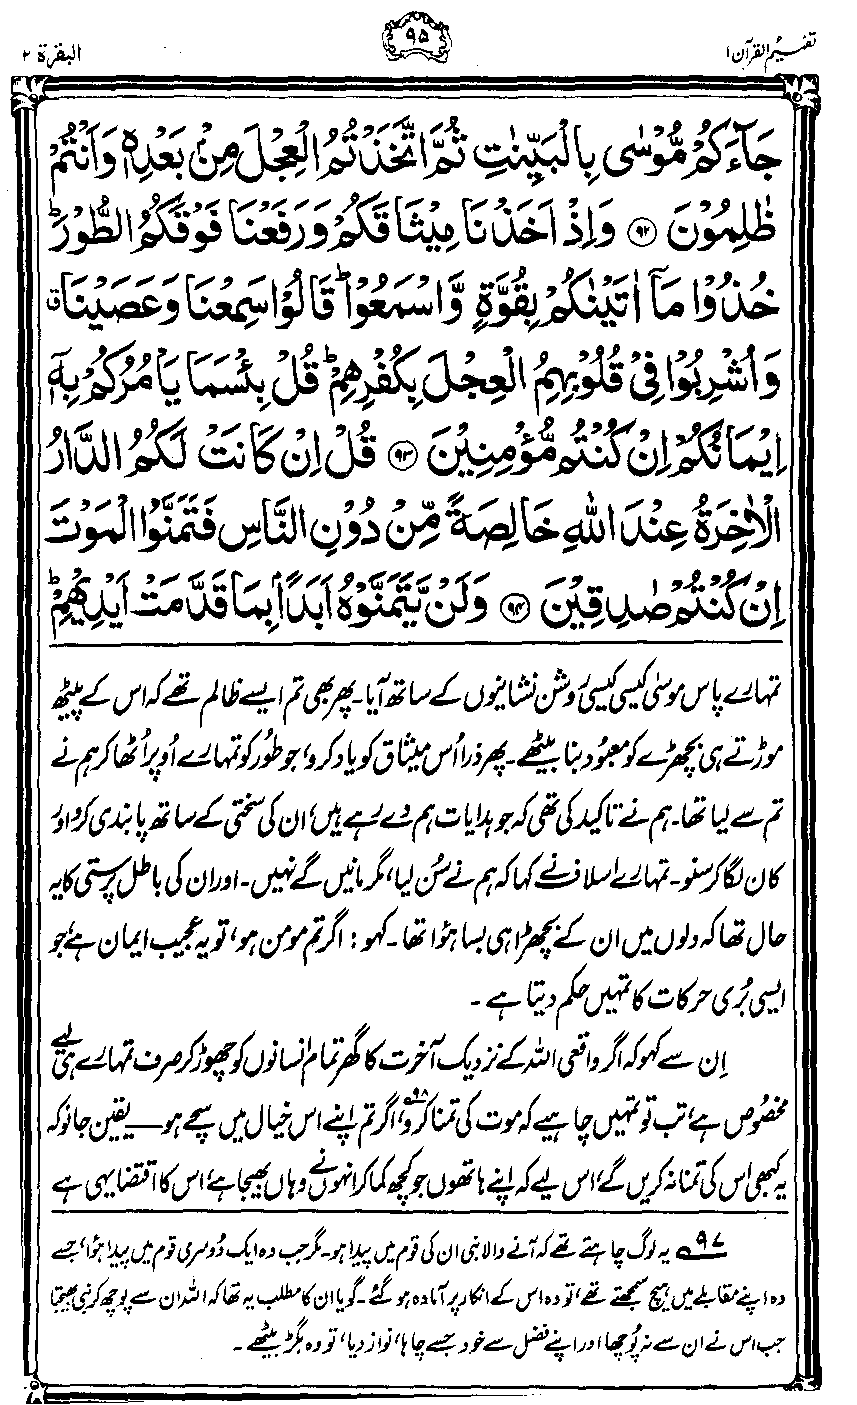 تفہیم القرآن ۱
۹۵
البقرة ۲
جَآءَكُمْ مُّوْسٰى بِالْبَيِّنٰتِ ثُمَّ اتَّخَذْتُمُ الْعِجْلَ مِنْۢ بَعْدِهٖ وَاَنْتُمْ
ظٰلِمُوْنَ ﴿۹۲﴾ وَاِذْ اَخَذْنَا مِيْثَاقَكُمْ وَرَفَعْنَا فَوْقَكُمُ الطُّوْرَ ؕ
خُذُوْا مَاۤ اٰتَيْنٰكُمْ بِقُوَّةٍ وَّاسْمَعُوْا ؕ قَالُوْا سَمِعْنَا وَعَصَيْنَا ٯ
وَاُشْرِبُوْا فِىْ قُلُوْبِهِمُ الْعِجْلَ بِكُفْرِهِمْ ؕ قُلْ بِئْسَمَا يَاْمُرُكُمْ بِهٖۤ
اِيْمَانُكُمْ اِنْ كُنْتُمْ مُّؤْمِنِيْنَ ﴿۹۳﴾ قُلْ اِنْ كَانَتْ لَكُمُ الدَّارُ
الْاٰخِرَةُ عِنْدَ اللهِ خَالِصَةً مِّنْ دُوْنِ النَّاسِ فَتَمَنَّوُا الْمَوْتَ
اِنْ كُنْتُمْ صٰدِقِيْنَ ﴿۹۴﴾ وَلَنْ يَّتَمَنَّوْهُ اَبَدًۢا بِمَا قَدَّمَتْ اَيْدِيْهِمْ ؕ
تمہارے پاس موسیٰ کیسی کیسی روشن نشانیوں کے ساتھ آیا۔ پھر بھی تم ایسے ظالم تھے کہ اس کے پیٹھ
موڑتے ہی بچھڑے کو معبود بنا بیٹھے۔ پھر ذرا اُس میثاق کو یاد کرو، جو طُور کو تمہارے اُوپر اُٹھا کر ہم نے
تم سے لیا تھا۔ ہم نے تاکید کی تھی کہ جو ہدایات ہم دے رہے ہیں، ان کی سختی کے ساتھ پابندی کرو اور
کان لگا کر سنو۔ تمہارے اسلاف نے کہا کہ ہم نے سُن لیا، مگر مانیں گے نہیں۔ اور ان کی باطل پرستی کا یہ
حال تھا کہ دلوں میں ان کے بچھڑا ہی بسا ہوا تھا۔ کہو: اگر تم مومن ہو، تو یہ عجیب ایمان ہے، جو
ایسی بُری حرکات کا تمہیں حکم دیتا ہے۔
اِن سے کہو کہ اگر واقعی اللہ کے نزدیک آخرت کا گھر تمام انسانوں کو چھوڑ کر صرف تمہارے ہی لیے
مخصوص ہے، تب تو تمہیں چاہیے کہ موت کی تمنا کرو۹۸، اگر تم اپنے اس خیال میں سچے ہو — یقین جانو کہ
یہ کبھی اس کی تمنا نہ کریں گے، اس لیے کہ اپنے ہاتھوں جو کچھ کما کر انہوں نے وہاں بھیجا ہے، اس کا اقتضا یہی ہے
۹۷ یہ لوگ چاہتے تھے کہ آنے والا نبی ان کی قوم میں پیدا ہو۔ مگر جب وہ ایک دُوسری قوم میں پیدا ہُوا، جسے
وہ اپنے مقابلے میں ہیچ سمجھتے تھے، تو وہ اس کے انکار پر آمادہ ہو گئے۔ گویا ان کا مطلب یہ تھا کہ اللہ ان سے پوچھ کر نبی بھیجتا
جب اس نے ان سے نہ پُوچھا اور اپنے فضل سے خود جسے چاہا، نواز دیا، تو وہ بگڑ بیٹھے۔